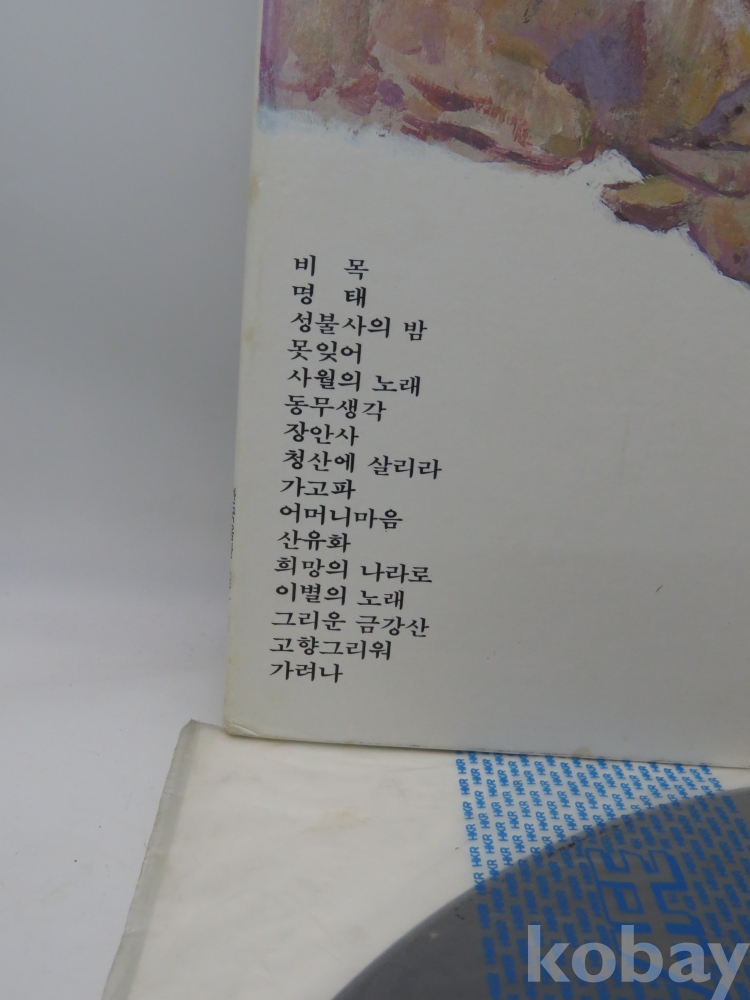 비 목
명 태
성불사의 밤
못잊어
사월의 노래
동무생각
장안사
청산에 살리라
가고파
어머니마음
산유화
희망의 나라로
이별의 노래
그리운 금강산
고향그리워
가려나
HKR HKR HKR HKR HKR HKR
kobay